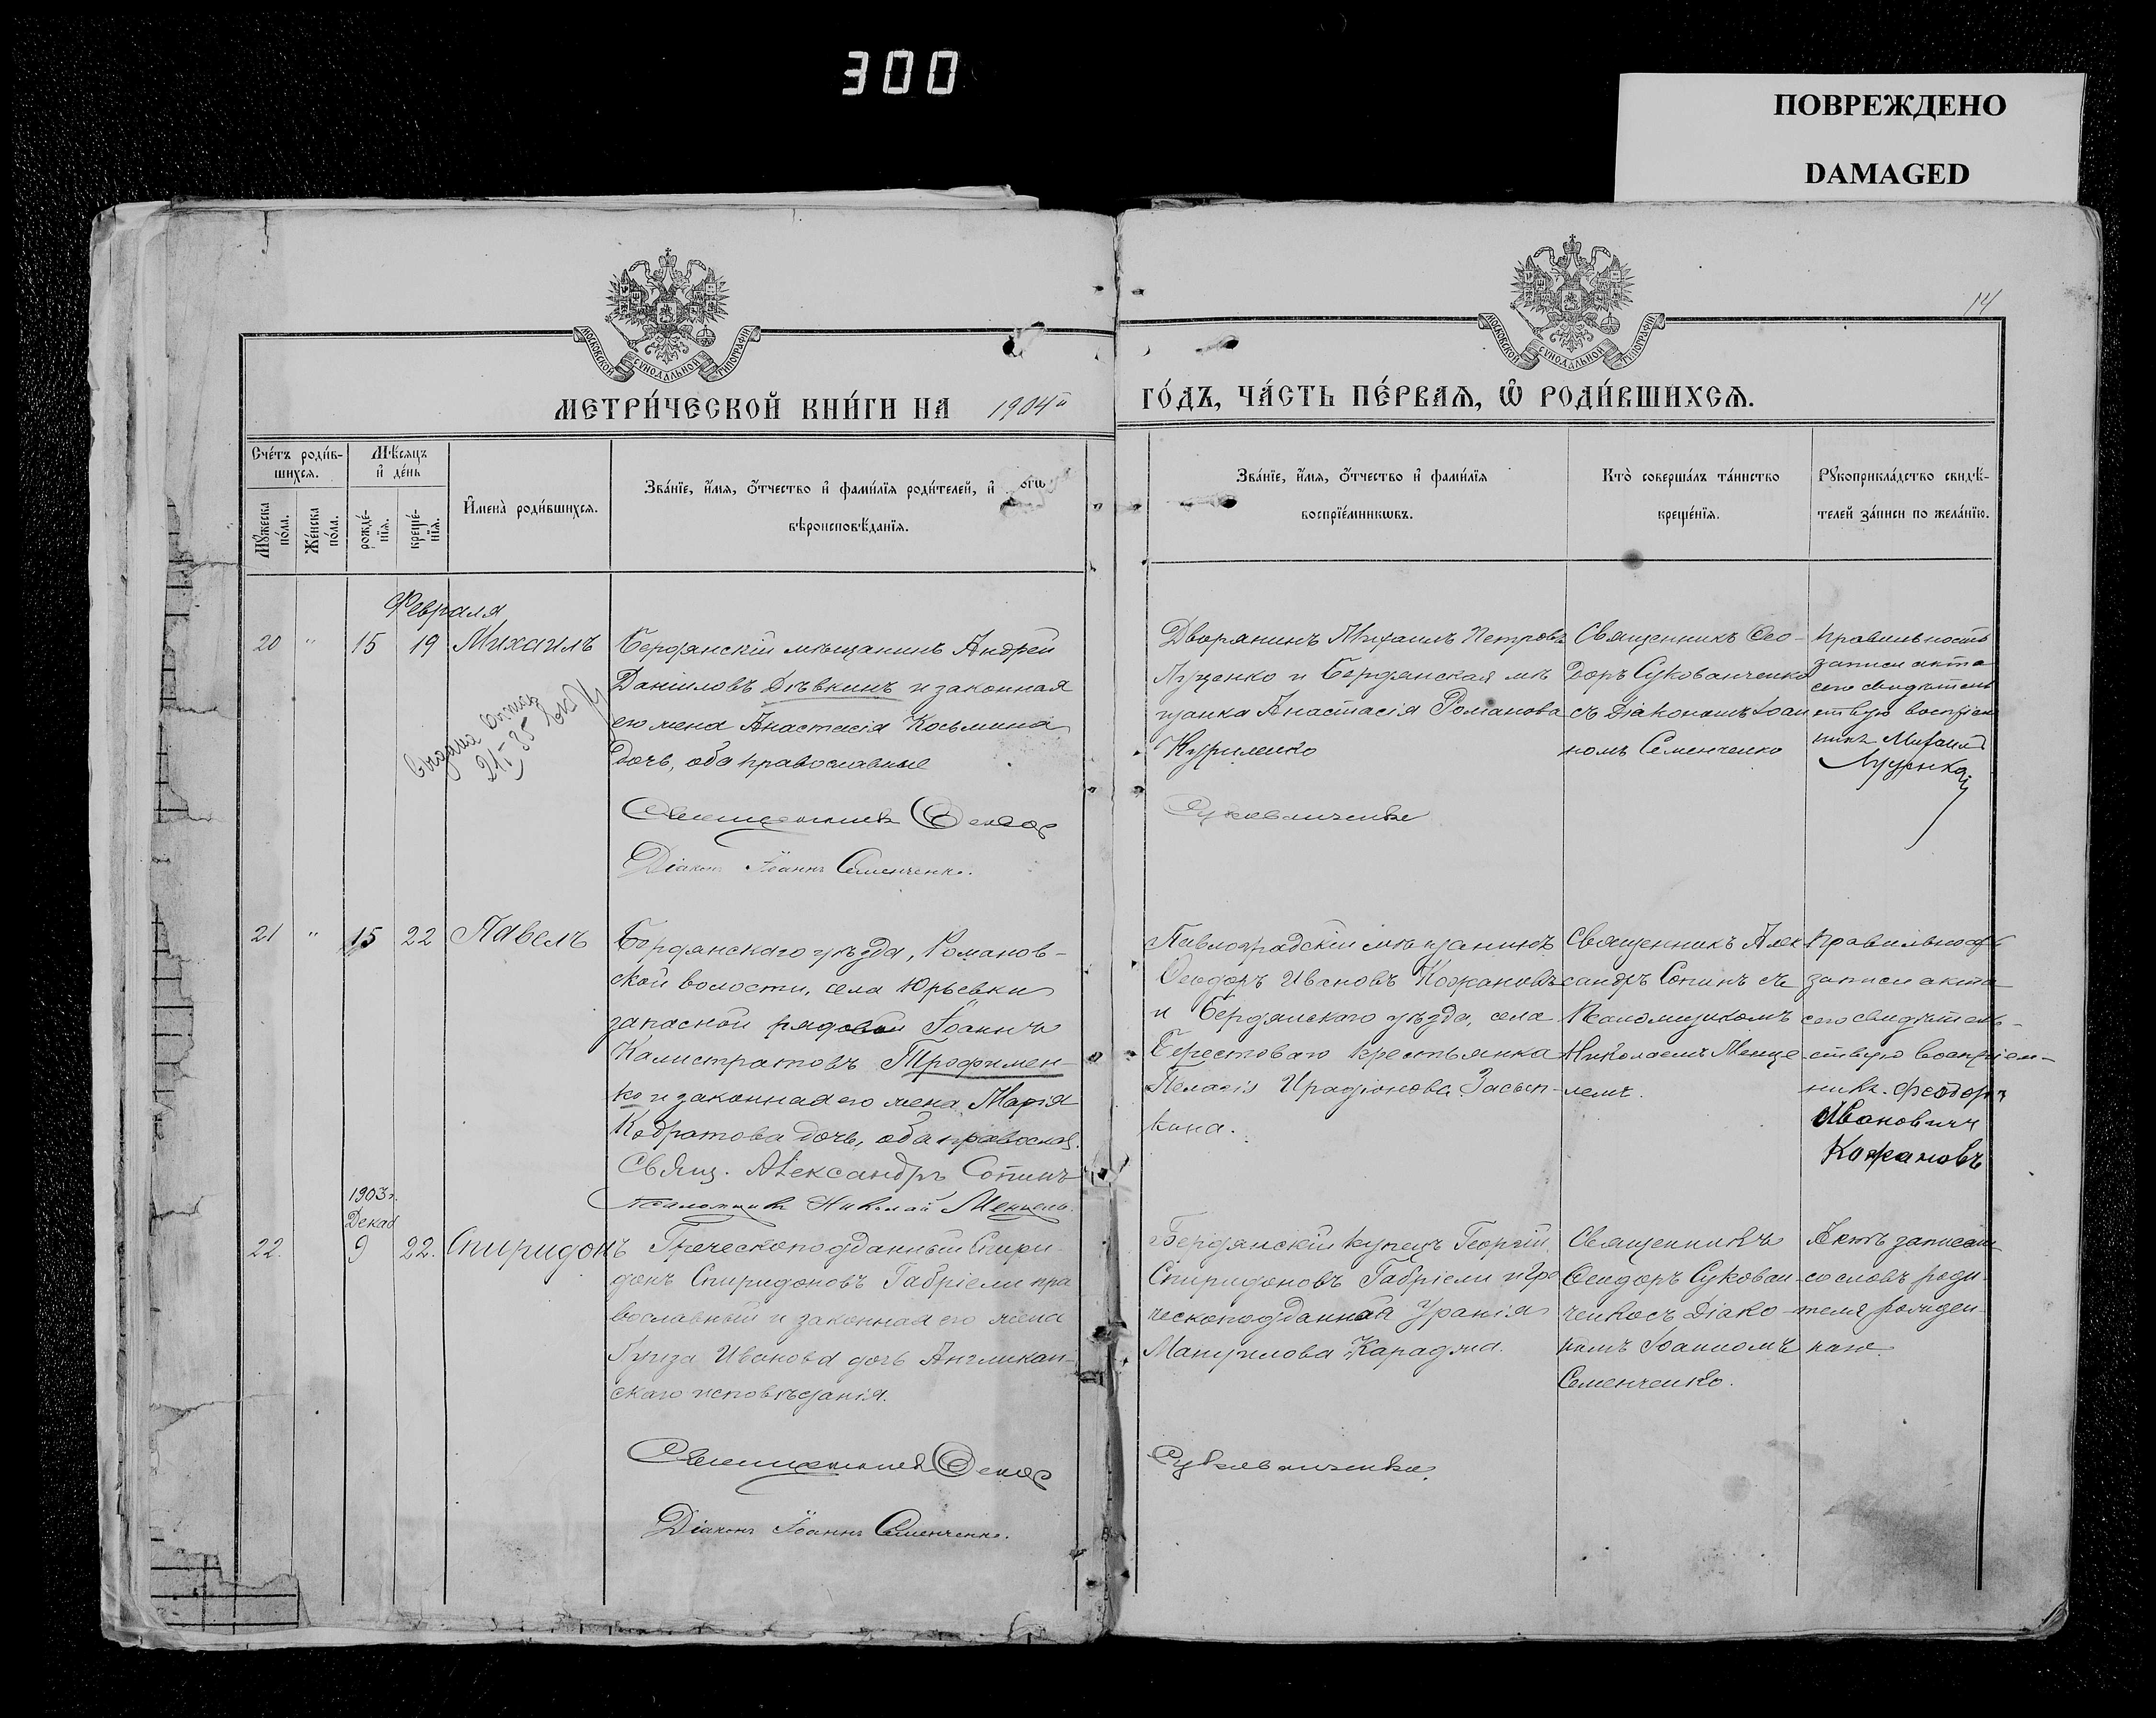 300
ПОВРЕЖДЕНО
DAMAGED
14
МОСКОВСКОЙ СѴНОДАЛЬНОЙ ТИПОГРАФІИ
МОСКОВСКОЙ СѴНОДАЛЬНОЙ ТИПОГРАФІИ
МЕТРИ́ЧЕСКОЙ КНИ́ГИ НА 1904й ГО́ДЪ, ЧА́СТЬ ПЕ́РВАѦ, Ѡ҆ РОДИ́ВШИХСѦ.
Сче́тъ роди́в-
шихсѧ.
Мꙋ́жеска по́ла.
Же́нска по́ла.
Мѣ́сѧцъ
и҆ де́нь
рожде́-
нїѧ.
креще́-
нїѧ.
И҆мена̀ роди́вшихсѧ.
Зва́нїе, и҆́мѧ, о҆́тчество и҆ фами́лїѧ роди́телей, и҆
вѣроисповѣ́данїѧ.
Зва́нїе, и҆́мѧ, о҆́тчество и҆ фами́лїѧ
воспрїе́мникѡвъ.
Кто̀ соверша́лъ та́инство
креще́нїѧ.
Рꙋкоприкла́дство свидѣ́-
телей за́писи по жела́нїю.
Февраля
20 " 15 19 Михаилъ
Бердянскій мѣщанинъ Андрей
Даніиловъ Дѣвкинъ и законная
его жена Анастасія Косьмина
дочь, оба православные
Священникъ Ѳеодор
Діаконъ Іоаннъ Семенченко.
Дворянинъ Михаилъ Петровъ
Луценко и Бердянская мѣ
щанка Анастасія Романова
Куриленко
Сукованченко
Священникъ Ѳео-
доръ Сукованченко
съ Діакономъ Іоан
номъ Семенченко
Правильность
записи акта
сего свидѣтель
ствую воспріем
никъ Михаилъ
Луценко
21 " 15 22 Павелъ
Бердянскаго уѣзда, Романов-
ской волости, села Юрьевки
запасной рядовой Іоаннъ
Калистратовъ Трофимен-
ко и законная его жена Марія
Кодратова дочь, оба православ.
Свящ. Александръ Сопинъ
Псаломщикъ Николай Менцель.
Павлоградскій мѣщанинъ
Ѳеодоръ Ивановъ Кожановъ
и Бердянскаго уѣзда, села
Берестоваго крестьянка
Пелагія Ирадіонова Засып-
кина.
Священникъ Алек
сандръ Сопинъ съ
Псаломщикомъ
Николаемъ Менце
лемъ.
Правильность
записи акта
сего свидѣтель-
ствую воспріем-
никъ. Феодоръ
Ивановичъ
Кожановъ
1903 г.
Декаб
22. 9 22. Спиридонъ
Греческоподданный Спири-
донъ Спиридоновъ Габріели пра
вославный и законная его жена
Луиза Иванова дочь Англикан-
скаго исповѣданія.
Священникъ Ѳеодор
Діаконъ Іоаннъ Семенченко.
Бердянскій купецъ Георгій
Спиридоновъ Габріели и Гре
ческоподданная Уранія
Мануилова Караджа.
Сукованченко.
Священникъ
Ѳеодоръ Сукован-
ченко съ Діако-
номъ Іоанномъ
Семенченко.
Актъ записанъ
со словъ роди-
теля